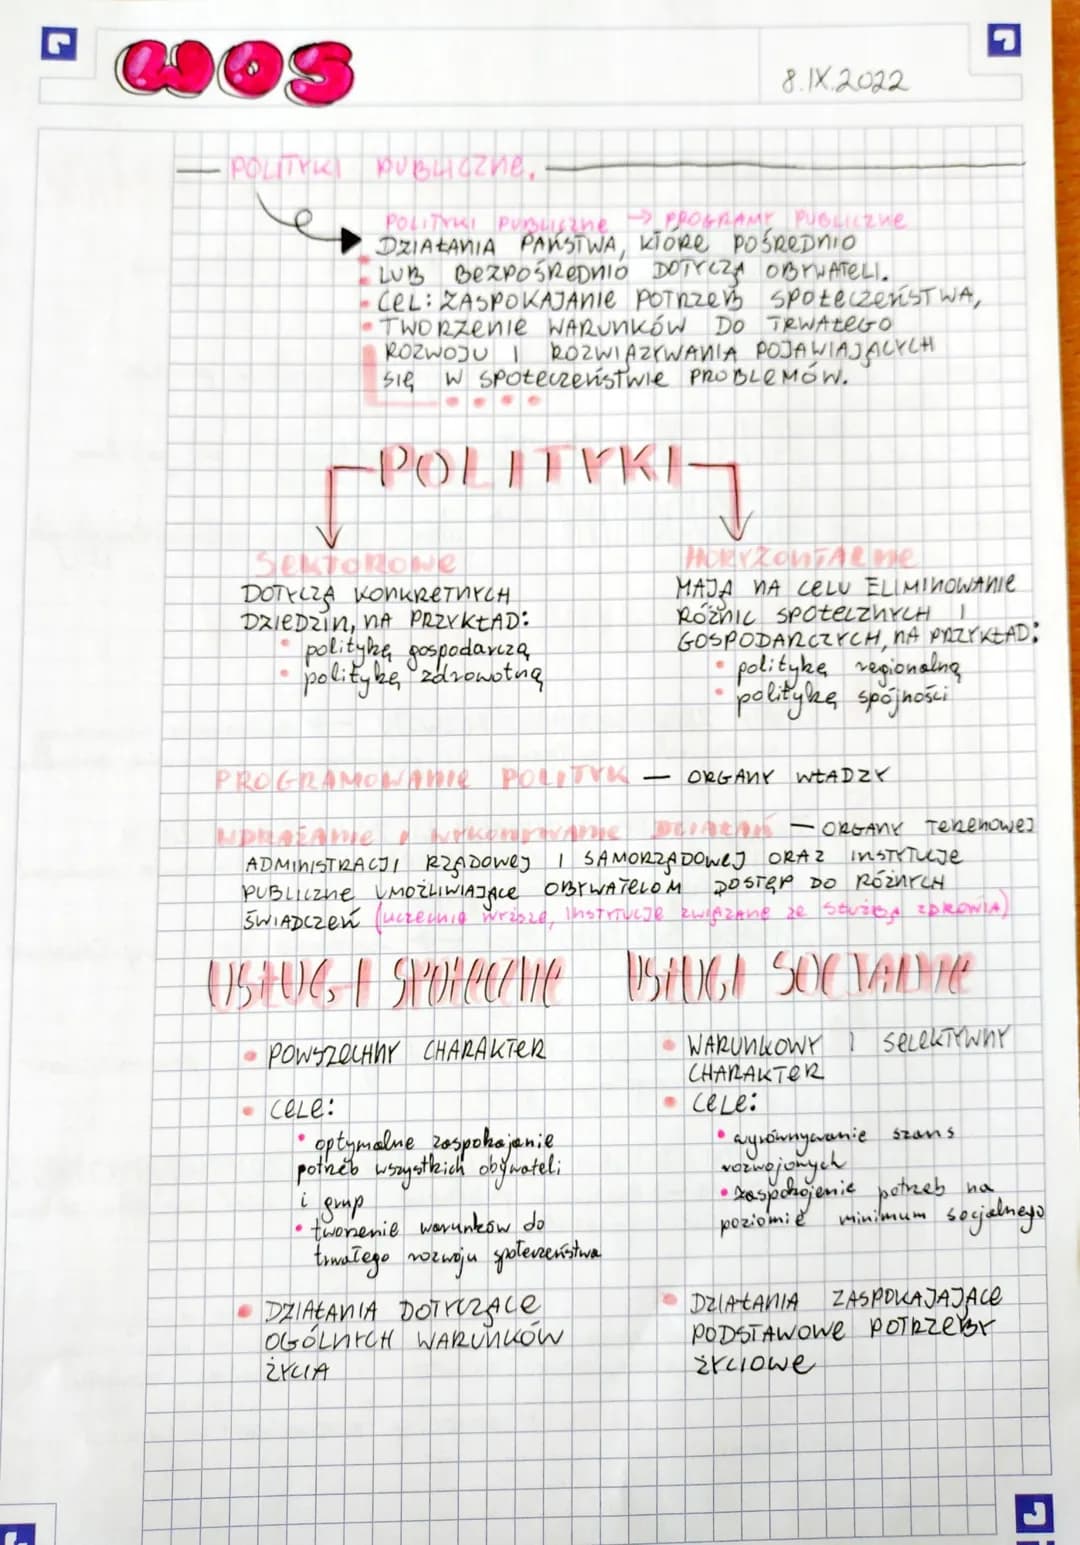 WOS
8.IX.2022
POLITYKI PUBLICZNE.
POLITYKI PUBLICZNE → PROGRAMY PUBLICZNE
DZIAŁANIA PAŃSTWA, KTÓRE POŚREDNIO
LUB BEZPOŚREDNIO DOTYCZĄ OBYWATELI.
CEL: ZASPOKAJANIE POTRZEB SPOŁECZEŃSTWA,
TWORZENIE WARUNKÓW DO TRWAŁEGO
ROZWOJU I ROZWIĄZYWANIA POJAWIAJĄCYCH
SIĘ W SPOŁECZEŃSTWIE PROBLEMÓW.
POLITYKI
SEKTOROWE
DOTYCZĄ KONKRETNYCH
DZIEDZIN, NA PRZYKŁAD:
• politykę gospodarczą
• politykę zdrowotną
HORYZONTALNE
MAJĄ NA CELU ELIMINOWANIE
RÓŻNIC SPOŁECZNYCH I
GOSPODARCZYCH, NA PRZYKŁAD:
• politykę regionalną
• politykę spójności
PROGRAMOWANIE POLITYK — ORGANY WŁADZY
WDRAŻANIE I WYKONYWANIE DZIAŁAŃ — ORGANY TERENOWEJ
ADMINISTRACJI RZĄDOWEJ I SAMORZĄDOWEJ ORAZ INSTYTUCJE
PUBLICZNE UMOŻLIWIAJĄCE OBYWATELOM DOSTĘP DO RÓŻNYCH
ŚWIADCZEŃ (uczelnie wyższe, INSTYTUCJE ZWIĄZANE ZE SŁUŻBĄ ZDROWIA)
USŁUGI SPOŁECZNE
• POWSZECHNY CHARAKTER
• CELE:
• optymalne zaspokajanie
potrzeb wszystkich obywateli
i grup
• tworzenie warunków do
trwałego rozwoju społeczeństwa
• DZIAŁANIA DOTYCZĄCE
OGÓLNYCH WARUNKÓW
ŻYCIA
USŁUGI SOCJALNE
• WARUNKOWY I SELEKTYWNY
CHARAKTER
• CELE:
• wyrównywanie szans
rozwojowych
• zaspokojenie potrzeb na
poziomie minimum socjalnego
• DZIAŁANIA ZASPOKAJAJĄCE
PODSTAWOWE POTRZEBY
ŻYCIOWE